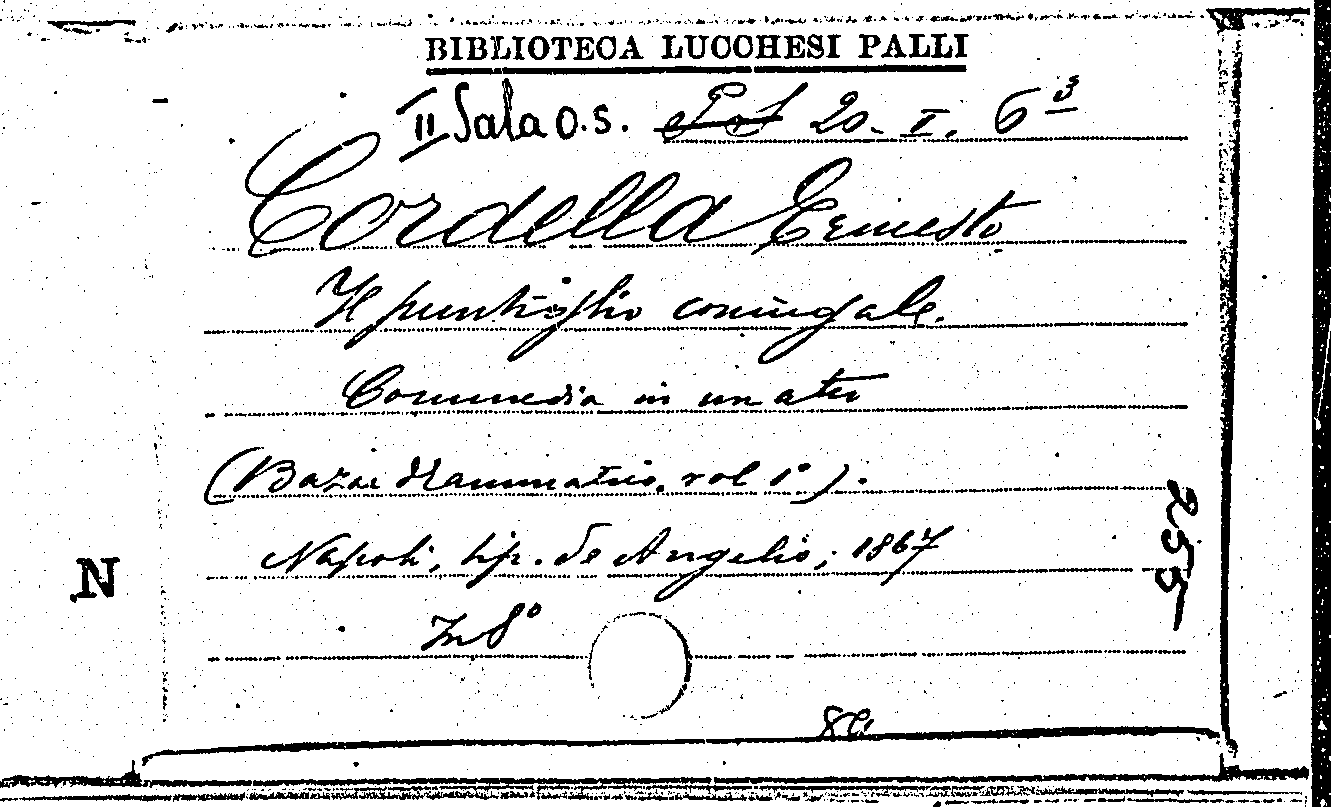 BIBLIOTECA LUCCHESI PALLI
II Sala O.S. 20. I. 6³
Cordella Ernesto
Il puntiglio coniugale.
Commedia in un atto
(Bazar drammatico, vol 1°).
Napoli, tip. de Angelis, 1867
In 8°
N
255